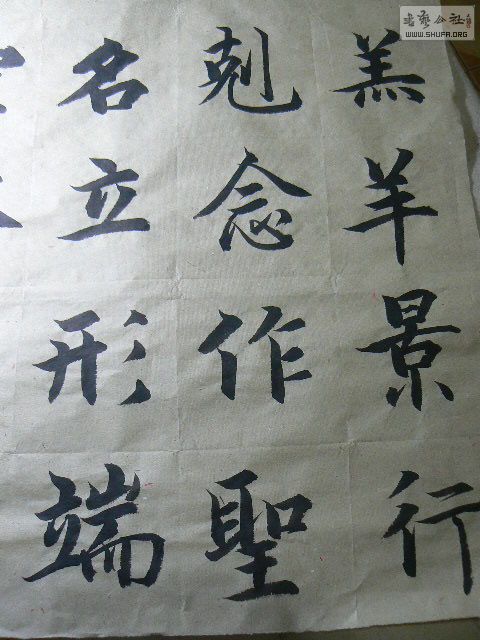 羔羊景行
剋念作聖
名立形端
書藝公社
WWW.SHUFA.ORG